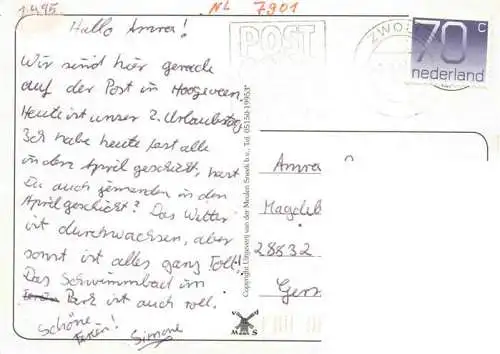 1.4.95.
NL 7901
Hallo Amra!
Wir sind hier gerade
auf der Post in Hoogeveen.
Heute ist unser 2. Urlaubstag
Ich habe heute fast alle
in den April geschickt, hast
Du auch jemanden in den
April geschickt? Das Wetter
ist durchwachsen, aber
sonst ist alles ganz Toll!
Das Schwimmbad im
Park ist auch toll.
Schöne
Ferien!
Simone
Copyright Uitgeverij van der Meulen Sneek b.v., Tel. 05150-19953*
M S
POST
ZWO
70 c
nederland
Amra
Magdeb
28832
Gers